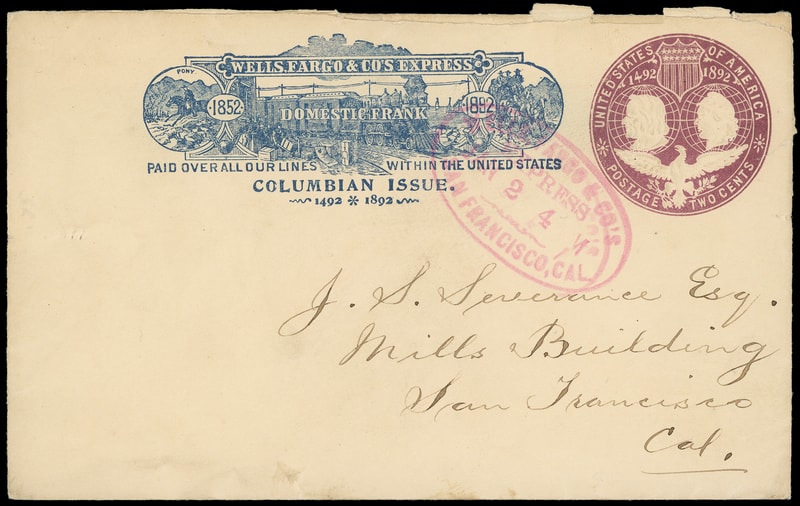 WELLS, FARGO & CO'S EXPRESS
PONY
1852
1892
DOMESTIC FRANK
PAID OVER ALL OUR LINES WITHIN THE UNITED STATES
COLUMBIAN ISSUE.
1492 * 1892
UNITED STATES OF AMERICA
1492 1892
POSTAGE TWO CENTS
& CO'S
PRESS
2 4
N FRANCISCO, CAL.
J. S. Severance Esq.
Mills Building
San Francisco
Cal.